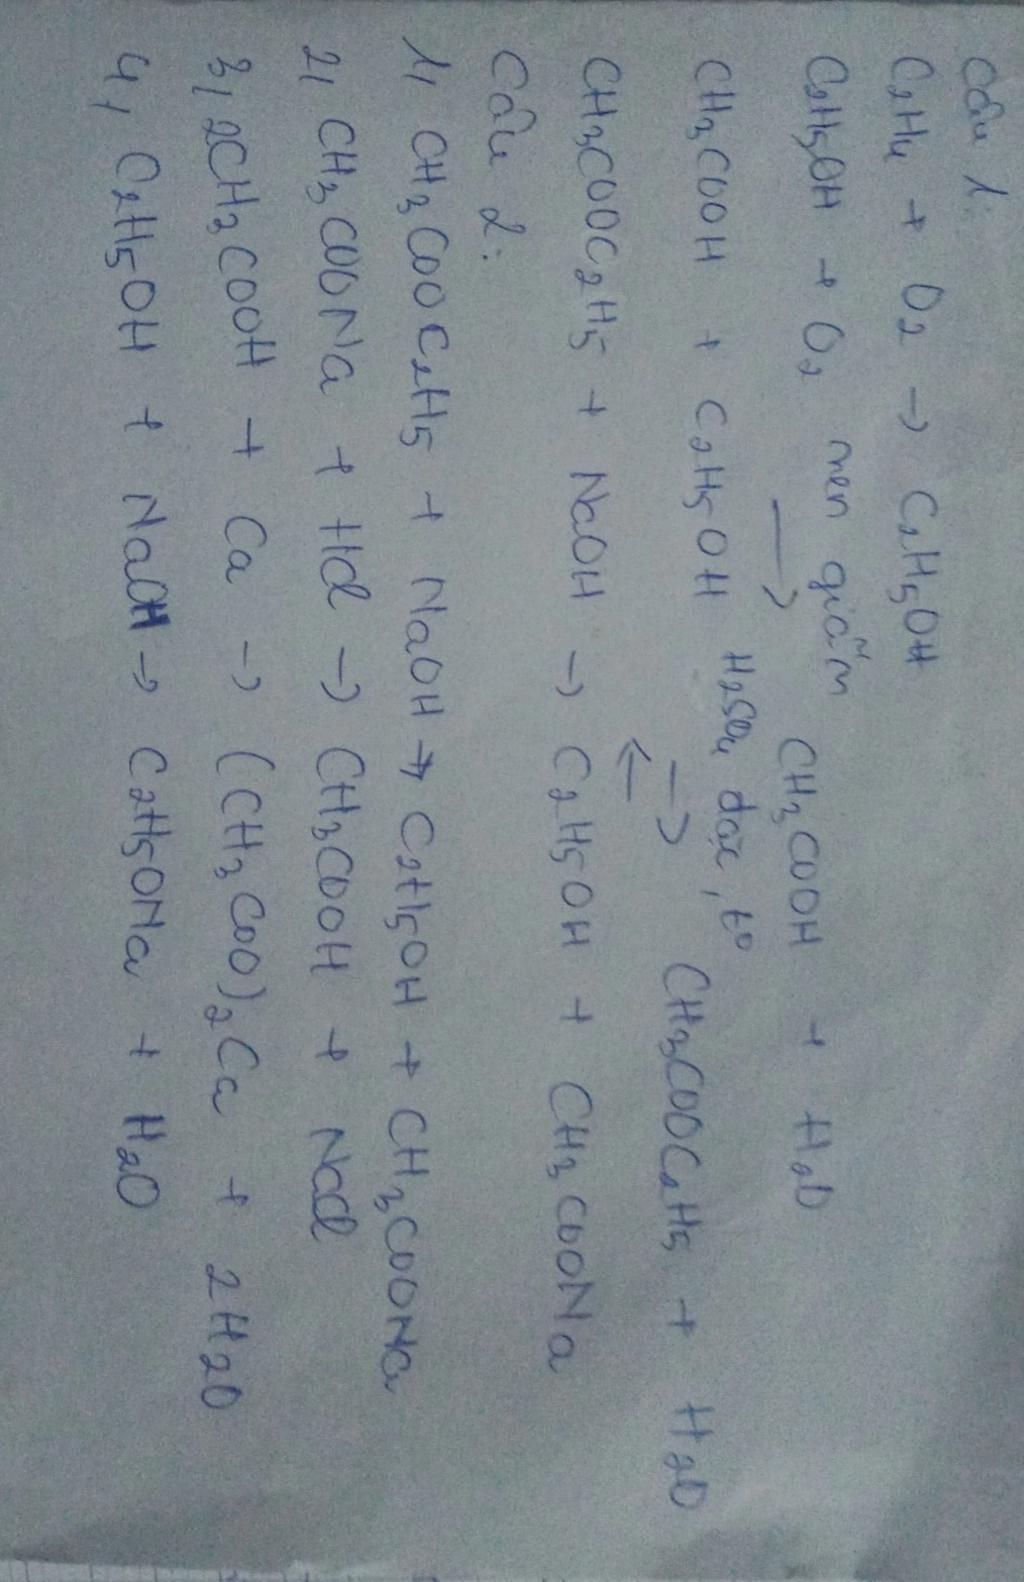 Câu 1:
C2H4 + O2 → C2H5OH
C2H5OH + O2 men giấm → CH3COOH + H2O
CH3COOH + C2H5OH H2SO4 đặc, t° ⇄ CH3COOC2H5 + H2O
CH3COOC2H5 + NaOH → C2H5OH + CH3COONa
Câu 2:
1, CH3COOC2H5 + NaOH → C2H5OH + CH3COONa
2, CH3COONa + HCl → CH3COOH + NaCl
3, 2CH3COOH + Ca → (CH3COO)2Ca + 2H2O
4, C2H5OH + NaOH → C2H5ONa + H2O